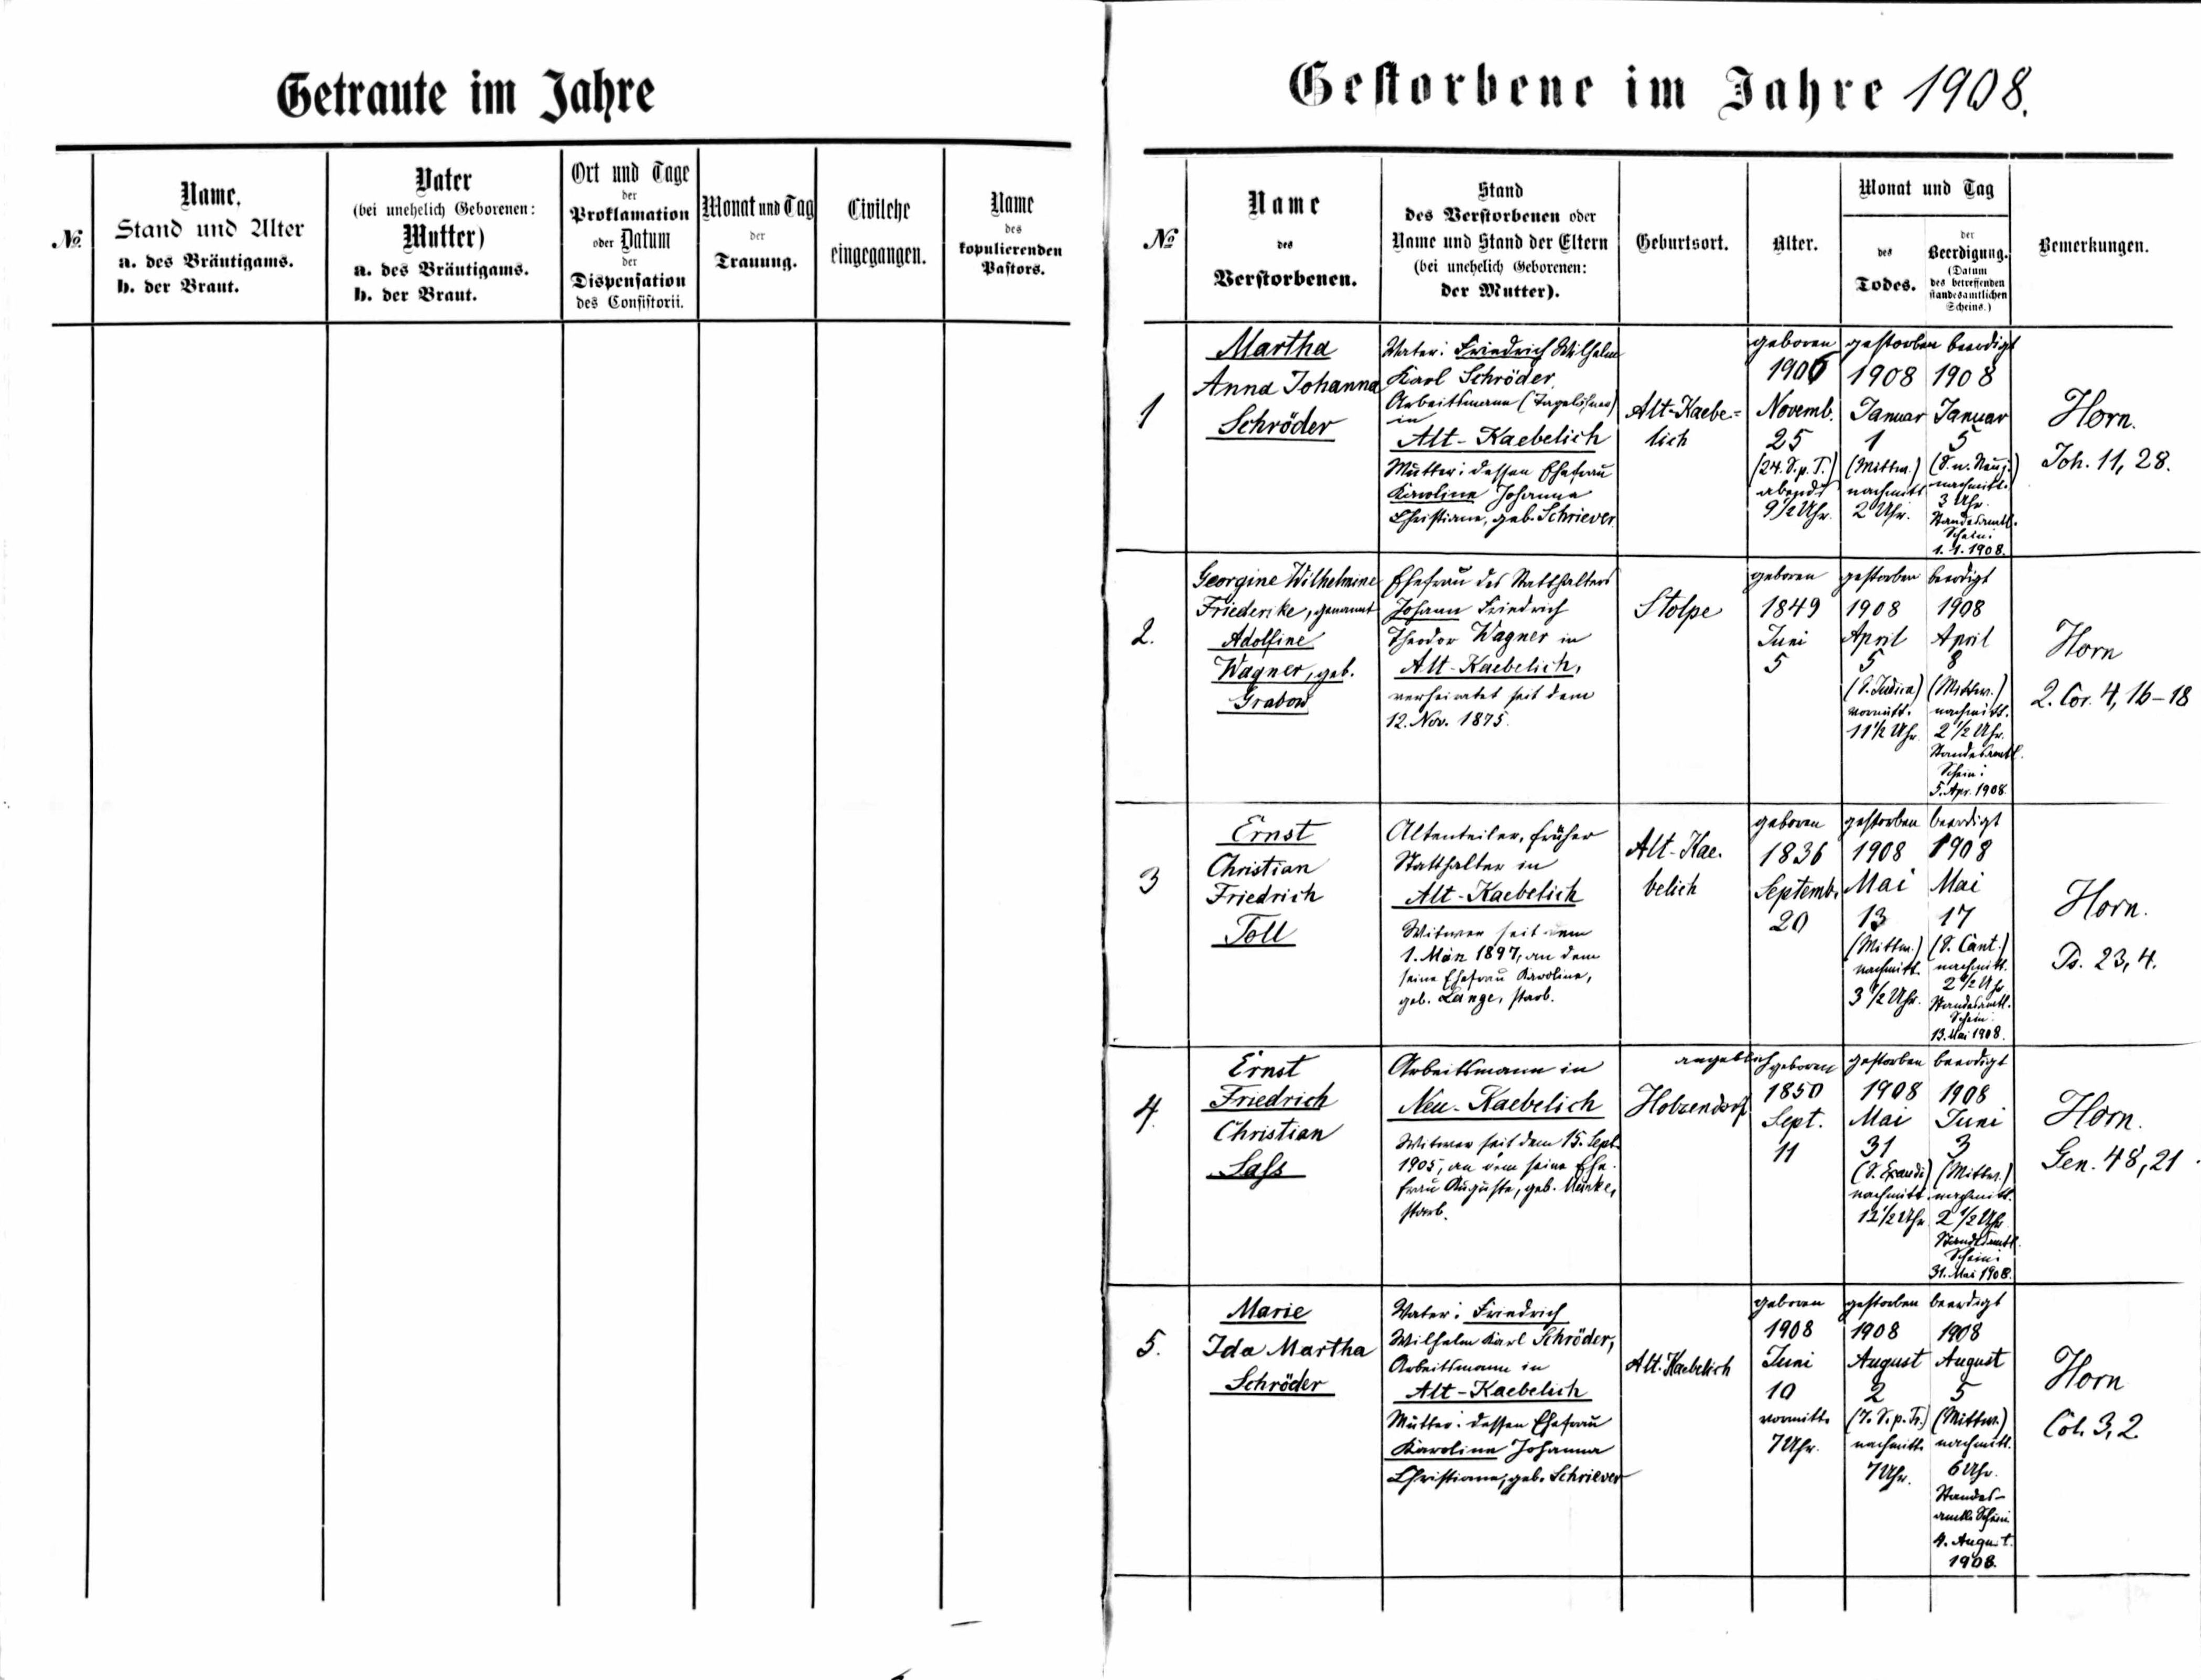 Getraute im Jahre
№
Name,
Stand und Alter
a. des Bräutigams.
b. der Braut.
Vater
(bei unehelich Geborenen:
Mutter)
a. des Bräutigams.
b. der Braut.
Ort und Tage
der
Proklamation
oder Datum
der
Dispensation
des Consistorii.
Monat und Tag
der
Trauung.
Civilehe
eingegangen.
Name
des
kopulierenden
Pastors.
Gestorbene im Jahre 1908.
№
Name
des
Verstorbenen.
Stand
des Verstorbenen oder
Name und Stand der Eltern
(bei unehelich Geborenen:
der Mutter).
Geburtsort.
Alter.
Monat und Tag
des
Todes.
der
Beerdigung.
(Datum
des betreffenden
standesamtlichen
Scheins.)
Bemerkungen.
1
Martha
Anna Johanna
Schröder
Vater: Friedrich Wilhelm
Karl Schröder,
Arbeitsmann (Tagelöhner)
in
Alt-Kaebelich
Mutter: dessen Ehefrau
Karoline Johanna
Christiane, geb. Schriever
Alt-Kaebe-
lich
geboren
1906
Novemb.
25
(24. S. p. T.)
abends
9 1/2 Uhr.
gestorben
1908
Januar
1
(Mittw.)
nachmitt
2 Uhr.
beerdigt
1908
Januar
5
(S. n. Neuj.)
nachmitt.
3 Uhr.
Standesamtl.
Schein:
1. 1. 1908.
Horn.
Joh. 11, 28.
2.
Georgine Wilhelmine
Friederike, genannt
Adolfine
Wagner, geb.
Grabow
Ehefrau des Statthalters
Johann Friedrich
Theodor Wagner in
Alt-Kaebelich,
verheiratet seit dem
12. Nov. 1875.
Stolpe
geboren
1849
Juni
5
gestorben
1908
April
5
(S. Judica)
vormitt.
11 1/2 Uhr
beerdigt
1908
April
8
(Mittw.)
nachmitt.
2 1/2 Uhr.
Standesamtl.
Schein:
5. Apr. 1908.
Horn
2. Cor. 4, 16-18
3
Ernst
Christian
Friedrich
Toll
Altenteiler, früher
Statthalter in
Alt-Kaebelich
Witwer seit dem
1. März 1897, an dem
seine Ehefrau Karoline,
geb. Lange, starb.
Alt-Kae.
belich
geboren
1836
Septemb.
20
gestorben
1908
Mai
13
(Mittw.)
nachmitt.
3 1/2 Uhr.
beerdigt
1908
Mai
17
(S. Cant.)
nachmitt.
2 1/2 Uhr
Standesamtl.
Schein:
13. Mai 1908.
Horn.
Ps. 23, 4.
4.
Ernst
Friedrich
Christian
Saß
Arbeitsmann in
Neu-Kaebelich
Witwer seit dem 15. Sept.
1905, an dem seine Ehe-
frau Auguste, geb.
starb.
Holzendorf
angeblich geboren
1850
Sept.
11
gestorben
1908
Mai
31
(S. Exaudi)
nachmitt.
12 1/2 Uhr
beerdigt
1908
Juni
3
(Mittw.)
nachmitt.
2 1/2 Uhr
Standesamtl.
Schein:
31. Mai 1908.
Horn.
Gen. 48, 21
5.
Marie
Ida Martha
Schröder
Vater: Friedrich
Wilhelm Karl Schröder,
Arbeitsmann in
Alt-Kaebelich
Mutter: dessen Ehefrau
Karoline Johanna
Christiane, geb. Schriever
Alt-Kaebelich
geboren
1908
Juni
10
vormitt.
7 Uhr.
gestorben
1908
August
2
(7. S. p. Tr.)
nachmitt.
7 Uhr.
beerdigt
1908
August
5
(Mittw.)
nachmitt.
6 Uhr.
Standes-
amtl. Schein
4. August.
1908.
Horn
Col. 3, 2.